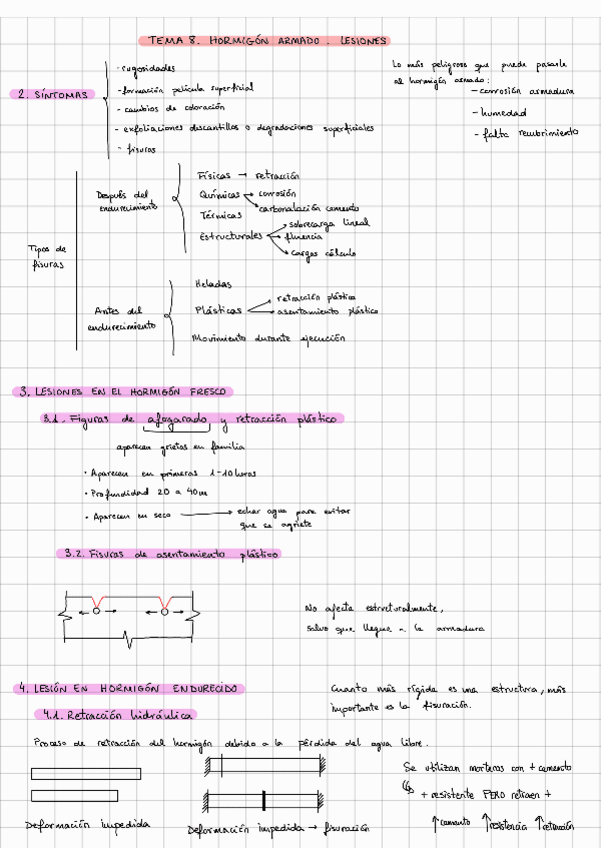 TEMA 8. HORMIGÓN ARMADO. LESIONES
2. SÍNTOMAS
- rugosidades
- formación película superficial
- cambios de coloración
- exfoliaciones descantillos o degradaciones superficiales
- fisuras
Lo más peligroso que puede pasarle
al hormigón armado:
- corrosión armadura
- humedad
- falta recubrimiento
Tipos de
fisuras
Después del
endurecimiento
Físicas → retracción
Químicas → corrosión
carbonatación cemento
Térmicas
Estructurales → sobrecarga lineal
fluencia
cargas cálculo
Antes del
endurecimiento
Heladas
Plásticas
retracción plástica
asentamiento plástico
Movimiento durante ejecución
3. LESIONES EN EL HORMIGÓN FRESCO
3.1. Figuras de afogarado y retracción plástico
aparecen grietas en familia
· Aparecen en primeras 1-10 horas
· Profundidad 20 a 40
· Aparecen en seco → echar agua para evitar
que se agriete
3.2. Fisuras de asentamiento plástico
No afecta estructuralmente,
salvo que llegue a la armadura
4. LESIÓN EN HORMIGÓN ENDURECIDO
Cuanto más rígida es una estructura, más
importante es la fisuración.
4.1. Retracción hidráulica
Proceso de retracción del hormigón debido a la pérdida del agua libre.
Se utilizan morteros con + cemento
+ resistente PERO retraen +
Deformación impedida
Deformación impedida → fisuración
↑cemento ↑resistencia ↑retracción